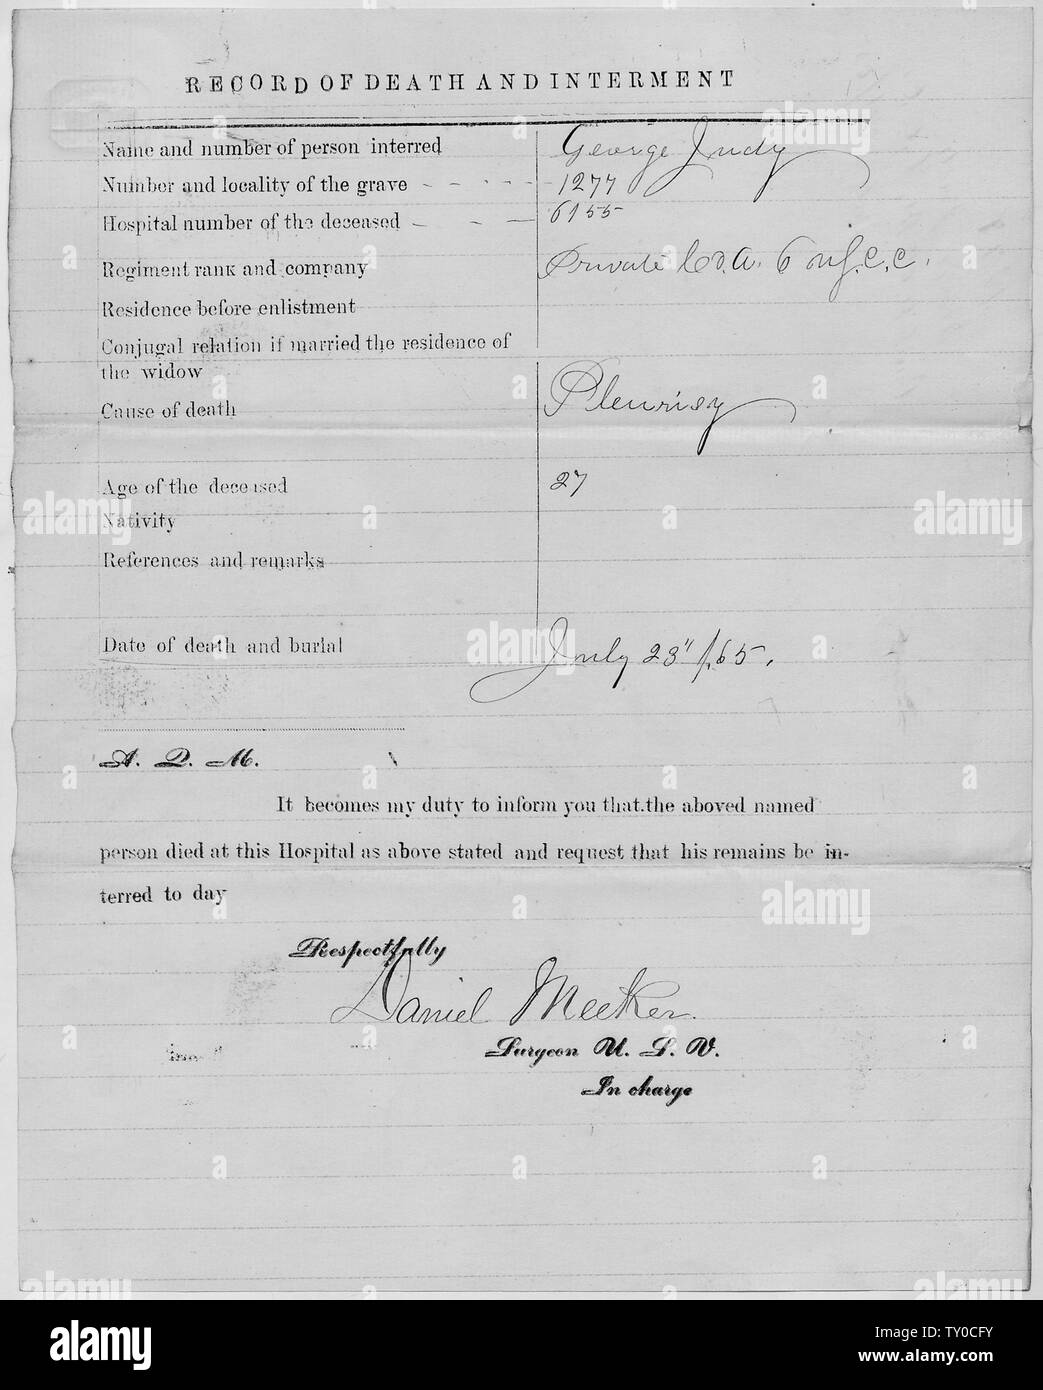 RECORD OF DEATH AND INTERMENT
Name and number of person interred George Judy
Number and locality of the grave - - - - - 1277
Hospital number of the deceased - - - 6155
Regiment rank and company Private Co. A. 6 C. C.
Residence before enlistment
Conjugal relation if married the residence of
the widow
Cause of death Pleurisy
Age of the deceased 27
Nativity
References and remarks
Date of death and burial July 23" /65.
A. Q. M.
It becomes my duty to inform you that.the aboved named
person died at this Hospital as above stated and request that his remains be in-
terred to day
Respectfully
Daniel Meeker.
Surgeon U. S. V.
In charge
alamy
Image ID: TY0CFY
www.alamy.com